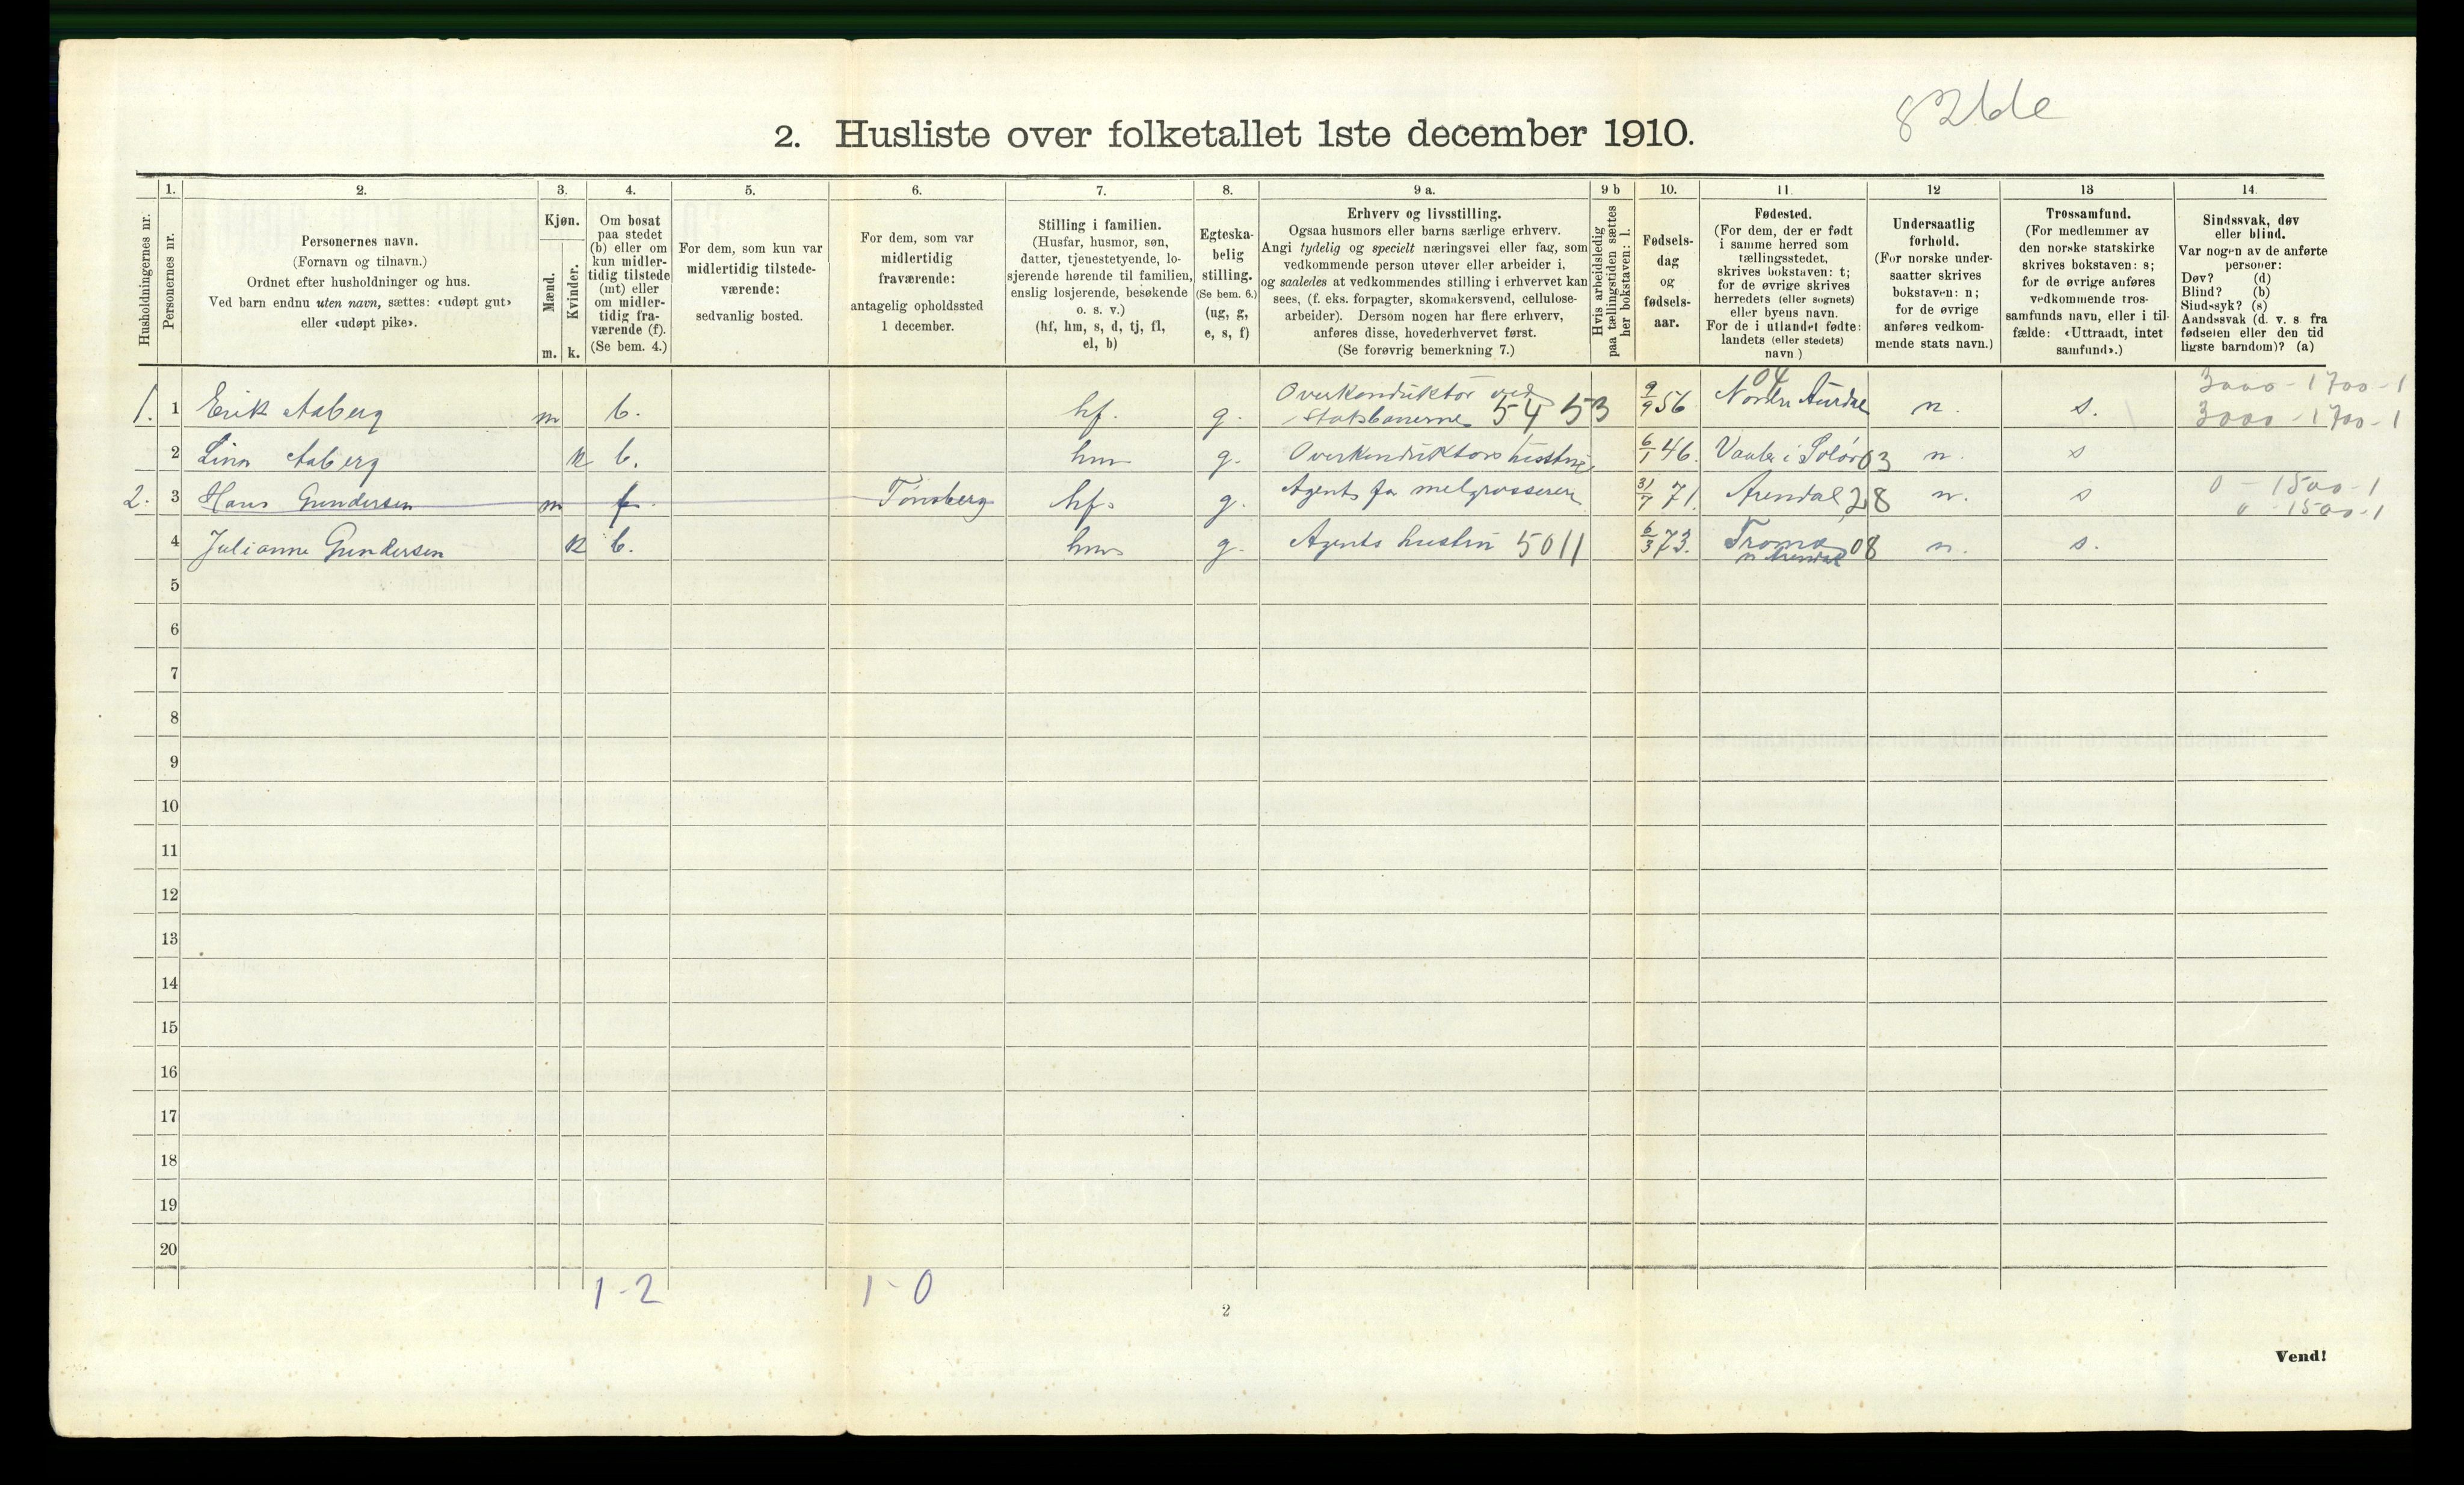 2. Husliste over folketallet 1ste december 1910.
Husholdningernes nr.
1.
Personernes nr.
2.
Personernes navn.
(Fornavn og tilnavn.)
Ordnet efter husholdninger og hus.
Ved barn endnu uten navn, sættes: «udøpt gut»
eller «udøpt pike».
3.
Kjøn.
Mænd.
Kvinder.
m. k.
4.
Om bosat
paa stedet
(b) eller om
kun midler-
tidig tilstede
(mt) eller
om midler-
tidig fra-
værende (f).
(Se bem. 4.)
5.
For dem, som kun var
midlertidig tilstede-
værende:
sedvanlig bosted.
6.
For dem, som var
midlertidig
fraværende:
antagelig opholdssted
1 december.
7.
Stilling i familien.
(Husfar, husmor, søn,
datter, tjenestetyende, lo-
sjerende hørende til familien,
enslig losjerende, besøkende
o. s. v.)
(hf, hm, s, d, tj, fl,
el, b)
8.
Egteska-
belig
stilling.
(Se bem. 6.)
(ug, g,
e, s, f)
9 a.
Erhverv og livsstilling.
Ogsaa husmors eller barns særlige erhverv.
Angi tydelig og specielt næringsvei eller fag, som
vedkommende person utøver eller arbeider i,
og saaledes at vedkommendes stilling i erhvervet kan
sees, (f. eks. forpagter, skomakersvend, cellulose-
arbeider). Dersom nogen har flere erhverv,
anføres disse, hovederhvervet først.
(Se forøvrig bemerkning 7.)
9 b
Hvis arbeidsledig
paa tællingstiden sættes
her bokstaven: l.
10.
Fødsels-
dag
og
fødsels-
aar.
11.
Fødested.
(For dem, der er født
i samme herred som
tællingsstedet,
skrives bokstaven: t;
for de øvrige skrives
herredets (eller sognets)
eller byens navn.
For de i utlandet fødte:
landets (eller stedets)
navn )
12
Undersaatlig
forhold.
(For norske under-
saatter skrives
bokstaven: n;
for de øvrige
anføres vedkom-
mende stats navn.)
13
Trossamfund.
(For medlemmer av
den norske statskirke
skrives bokstaven: s;
for de øvrige anføres
vedkommende tros-
samfunds navn, eller i til-
fælde: «Uttraadt, intet
samfund».)
14.
Sindssvak, døv
eller blind.
Var nogen av de anførte
personer:
Døv? (d)
Blind? (b)
Sindssyk? (s)
Aandssvak (d. v. s. fra
fødselen eller den tid
ligste barndom)? (a)
1. 1 Erik Aaberg m b. hf. g. Overkonduktør ved Statsbanerne 54 53 9/9 56 Nordre Aurdal 04 n. s. 3000-1700-1
3000-1700-1
2 Lina Aaberg k b. hm g. Overkonduktors hustru 6/1 46. Vaaler i Solør 03 n. s
2. 3 Hans Gundersen m f. Tønsberg hf. g. Agent for melgrosserere 31/7 71. Arendal 28 n. s 0-1500-1
0-1500-1
4 Julianne Gundersen k b. hm g. Agents hustru 5011 6/3 73. Tromø 08 n. s.
5
6
7
8
9
10
11
12
13
14
15
16
17
18
19
20
1-2 1-0
2
Vend!